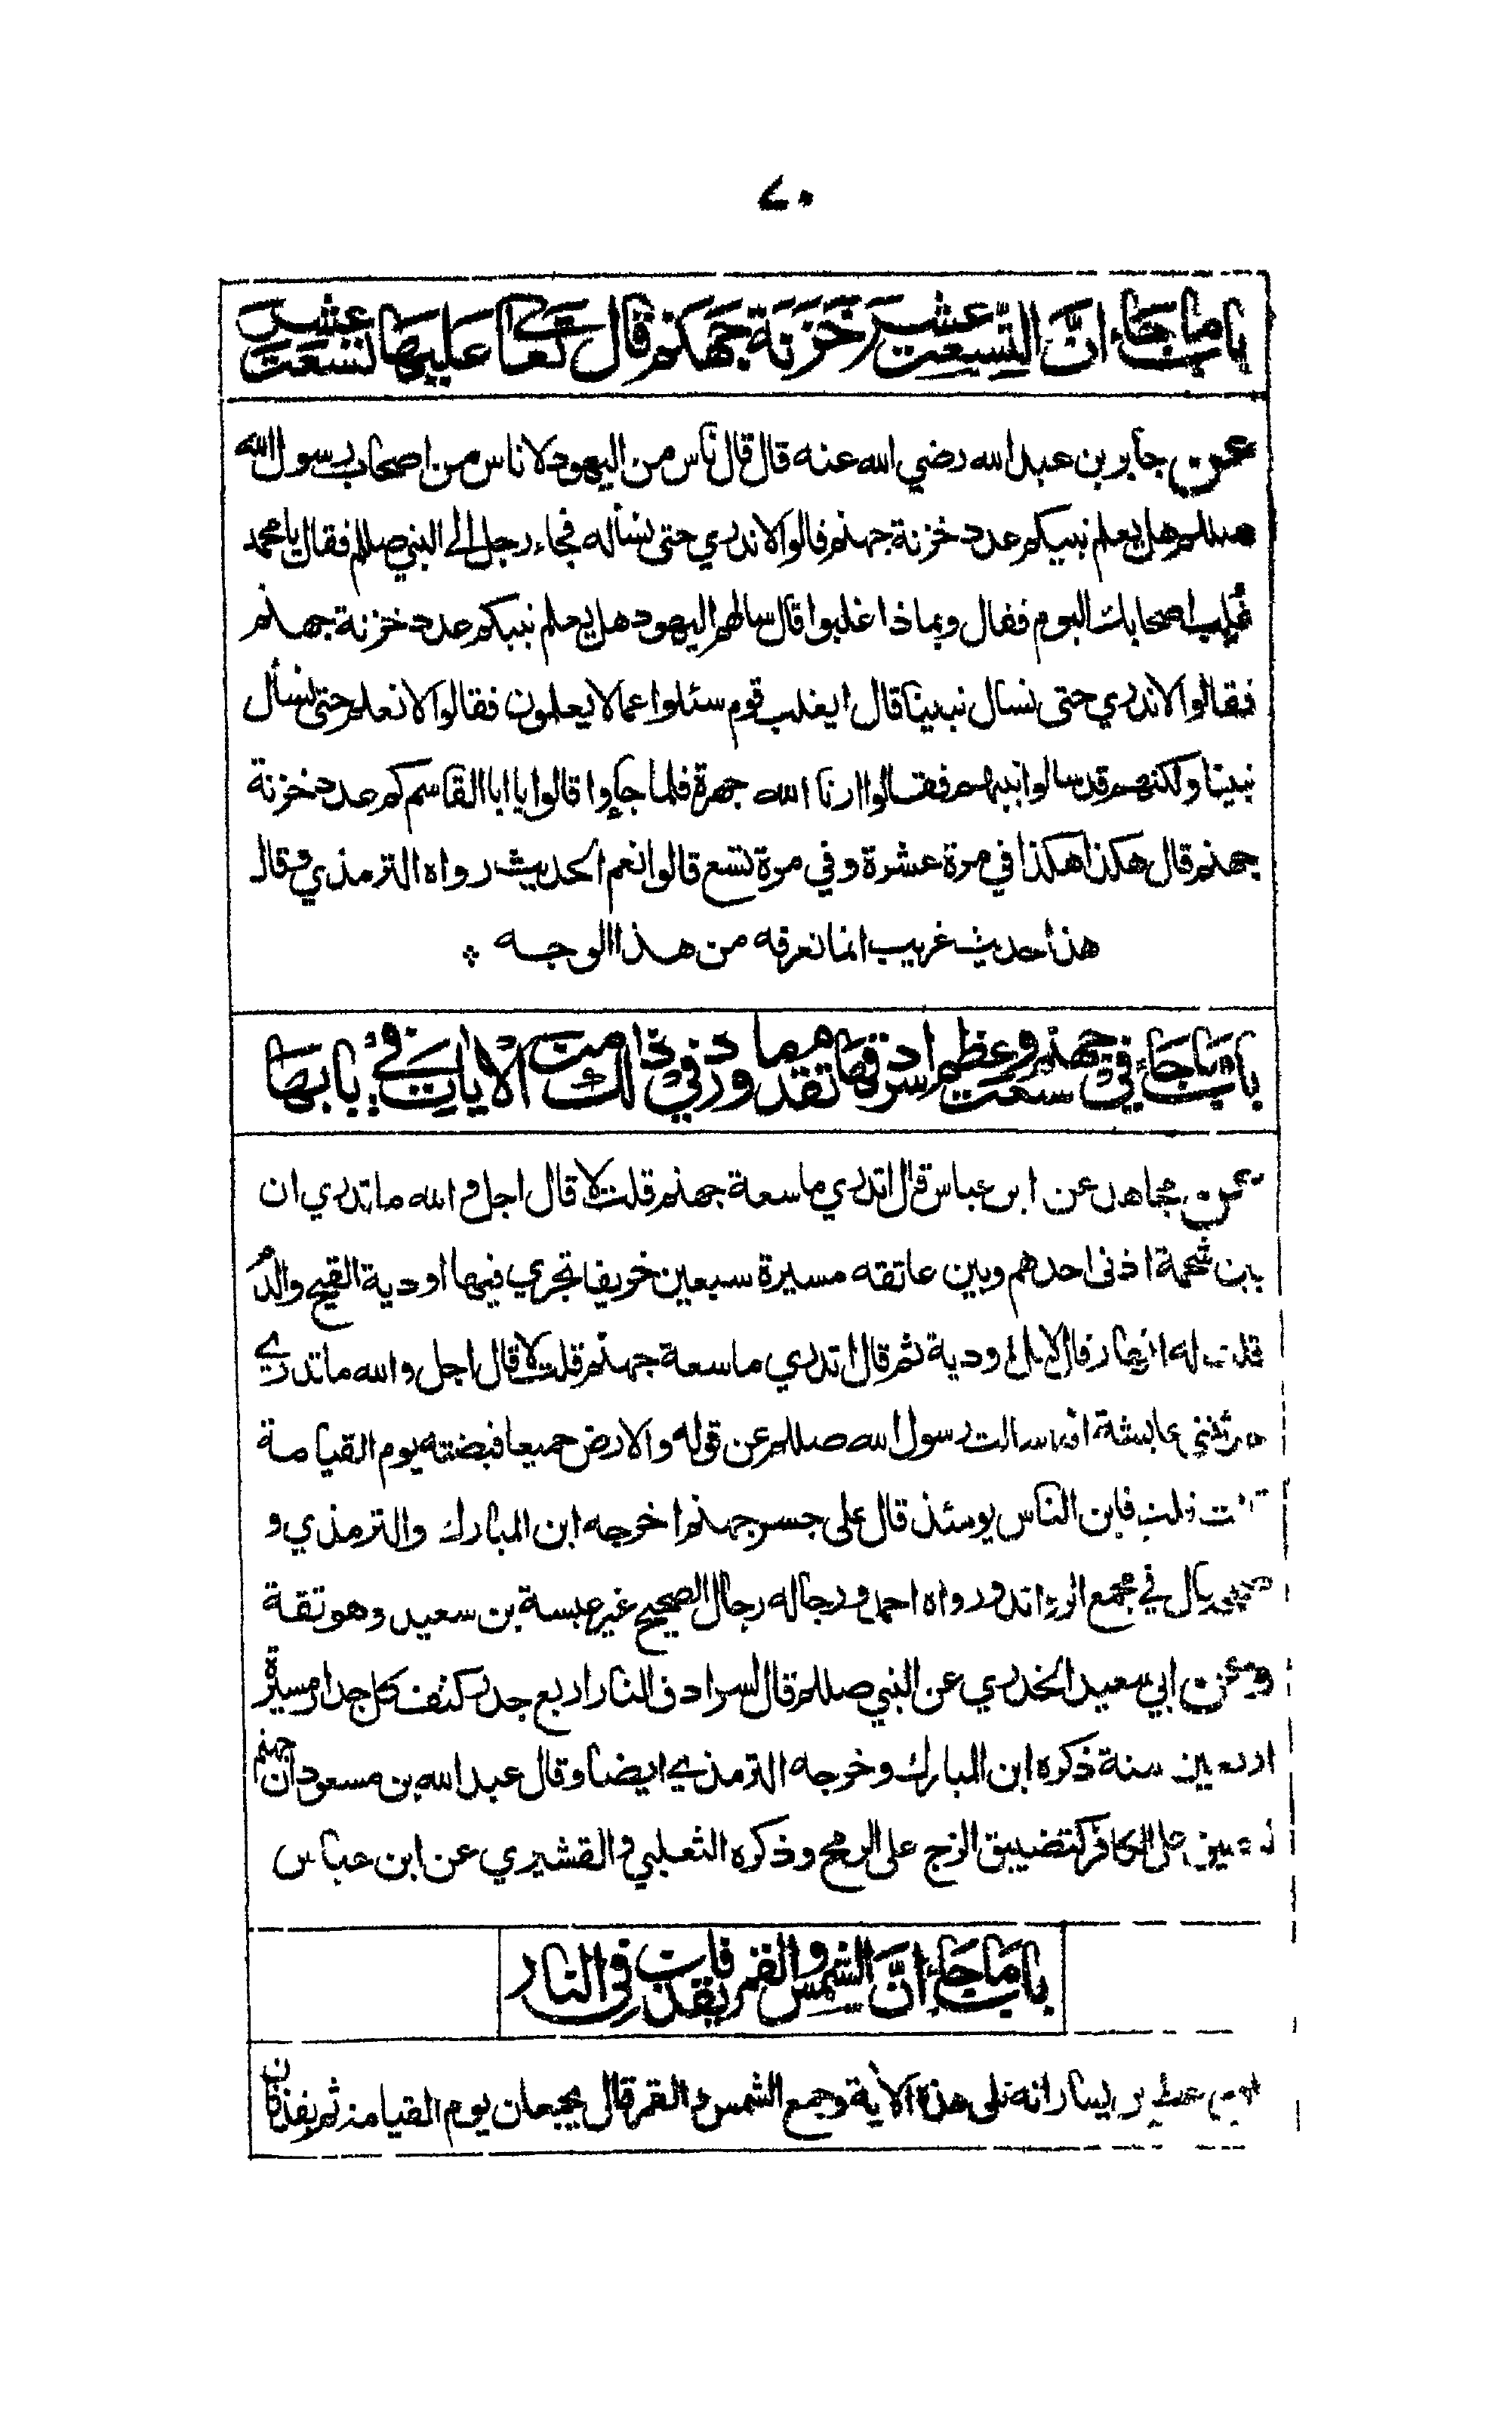 ٧٠
باب ما جاء ان التسعة عشر خزنة جهنم قال تعالى عليها تسعة عشر
عن جابر بن عبد الله رضي الله عنه قال قال ناس من اليهود لاناس من اصحاب رسول الله
صللم هل يعلم نبيكم عدد خزنة جهنم قالوا لا ندري حتى نسأله فجاء رجل الى النبي صللم فقال يا محمد
غُلِب اصحابك اليوم فقال وبماذا غلبوا قال سالهم اليهود هل يعلم نبيكم عدد خزنة جهنم
فقالوا لا ندري حتى نسال نبينا قال ايغلب قوم سئلوا عما لا يعلمون فقالوا لا نعلم حتى نسأل
نبينا ولكنهم قد سالوا نبيهم فقالوا ارنا الله جهرة فلما جاؤا قالوا يا ابا القاسم كم عدد خزنة
جهنم قال هكذا هكذا في مرة عشرة وفي مرة تسع قالوا نعم الحديث رواه الترمذي وقال
هذا حديث غريب انما نعرفه من هذا الوجه
باب ما جاء في سعة جهنم وعظم سرادقها مما تقدم ورد في ذلك من الايات في بابها
عن مجاهد عن ابن عباس قال اتدري ما سعة جهنم قلت لا قال اجل والله ما تدري ان
بين شحمة اذنى احدهم وبين عاتقه مسيرة سبعين خريفا تجري فيها اودية القيح والدم
قلت له انهار قال لا بل اودية ثم قال اتدري ما سعة جهنم قلت لا قال اجل والله ما تدري
حدثتني عايشة انها سالت رسول الله صللم عن قوله والارض جميعا قبضته يوم القيامة
قلت فاين الناس يومئذ قال على جسر جهنم اخرجه ابن المبارك والترمذي و
قال في مجمع الزوائد ورواه احمد ورجاله رجال الصحيح غير عبسة بن سعيد وهو ثقة
وعن ابي سعيد الخدري عن النبي صللم قال لسرادق النار اربع جدر كثف كل جدار مسيرة
اربعين سنة ذكره ابن المبارك وخرجه الترمذي ايضا وقال عبد الله بن مسعود ان جهنم
على الكافر كتضييق الزج على الرمح وذكره الثعلبي والقشيري عن ابن عباس
باب ما جاء ان الشمس والقمر يقذفان في النار
يسار انه تلى هذه الآية وجمع الشمس والقمر قال يجمعان يوم القيامة ثم يقذفان